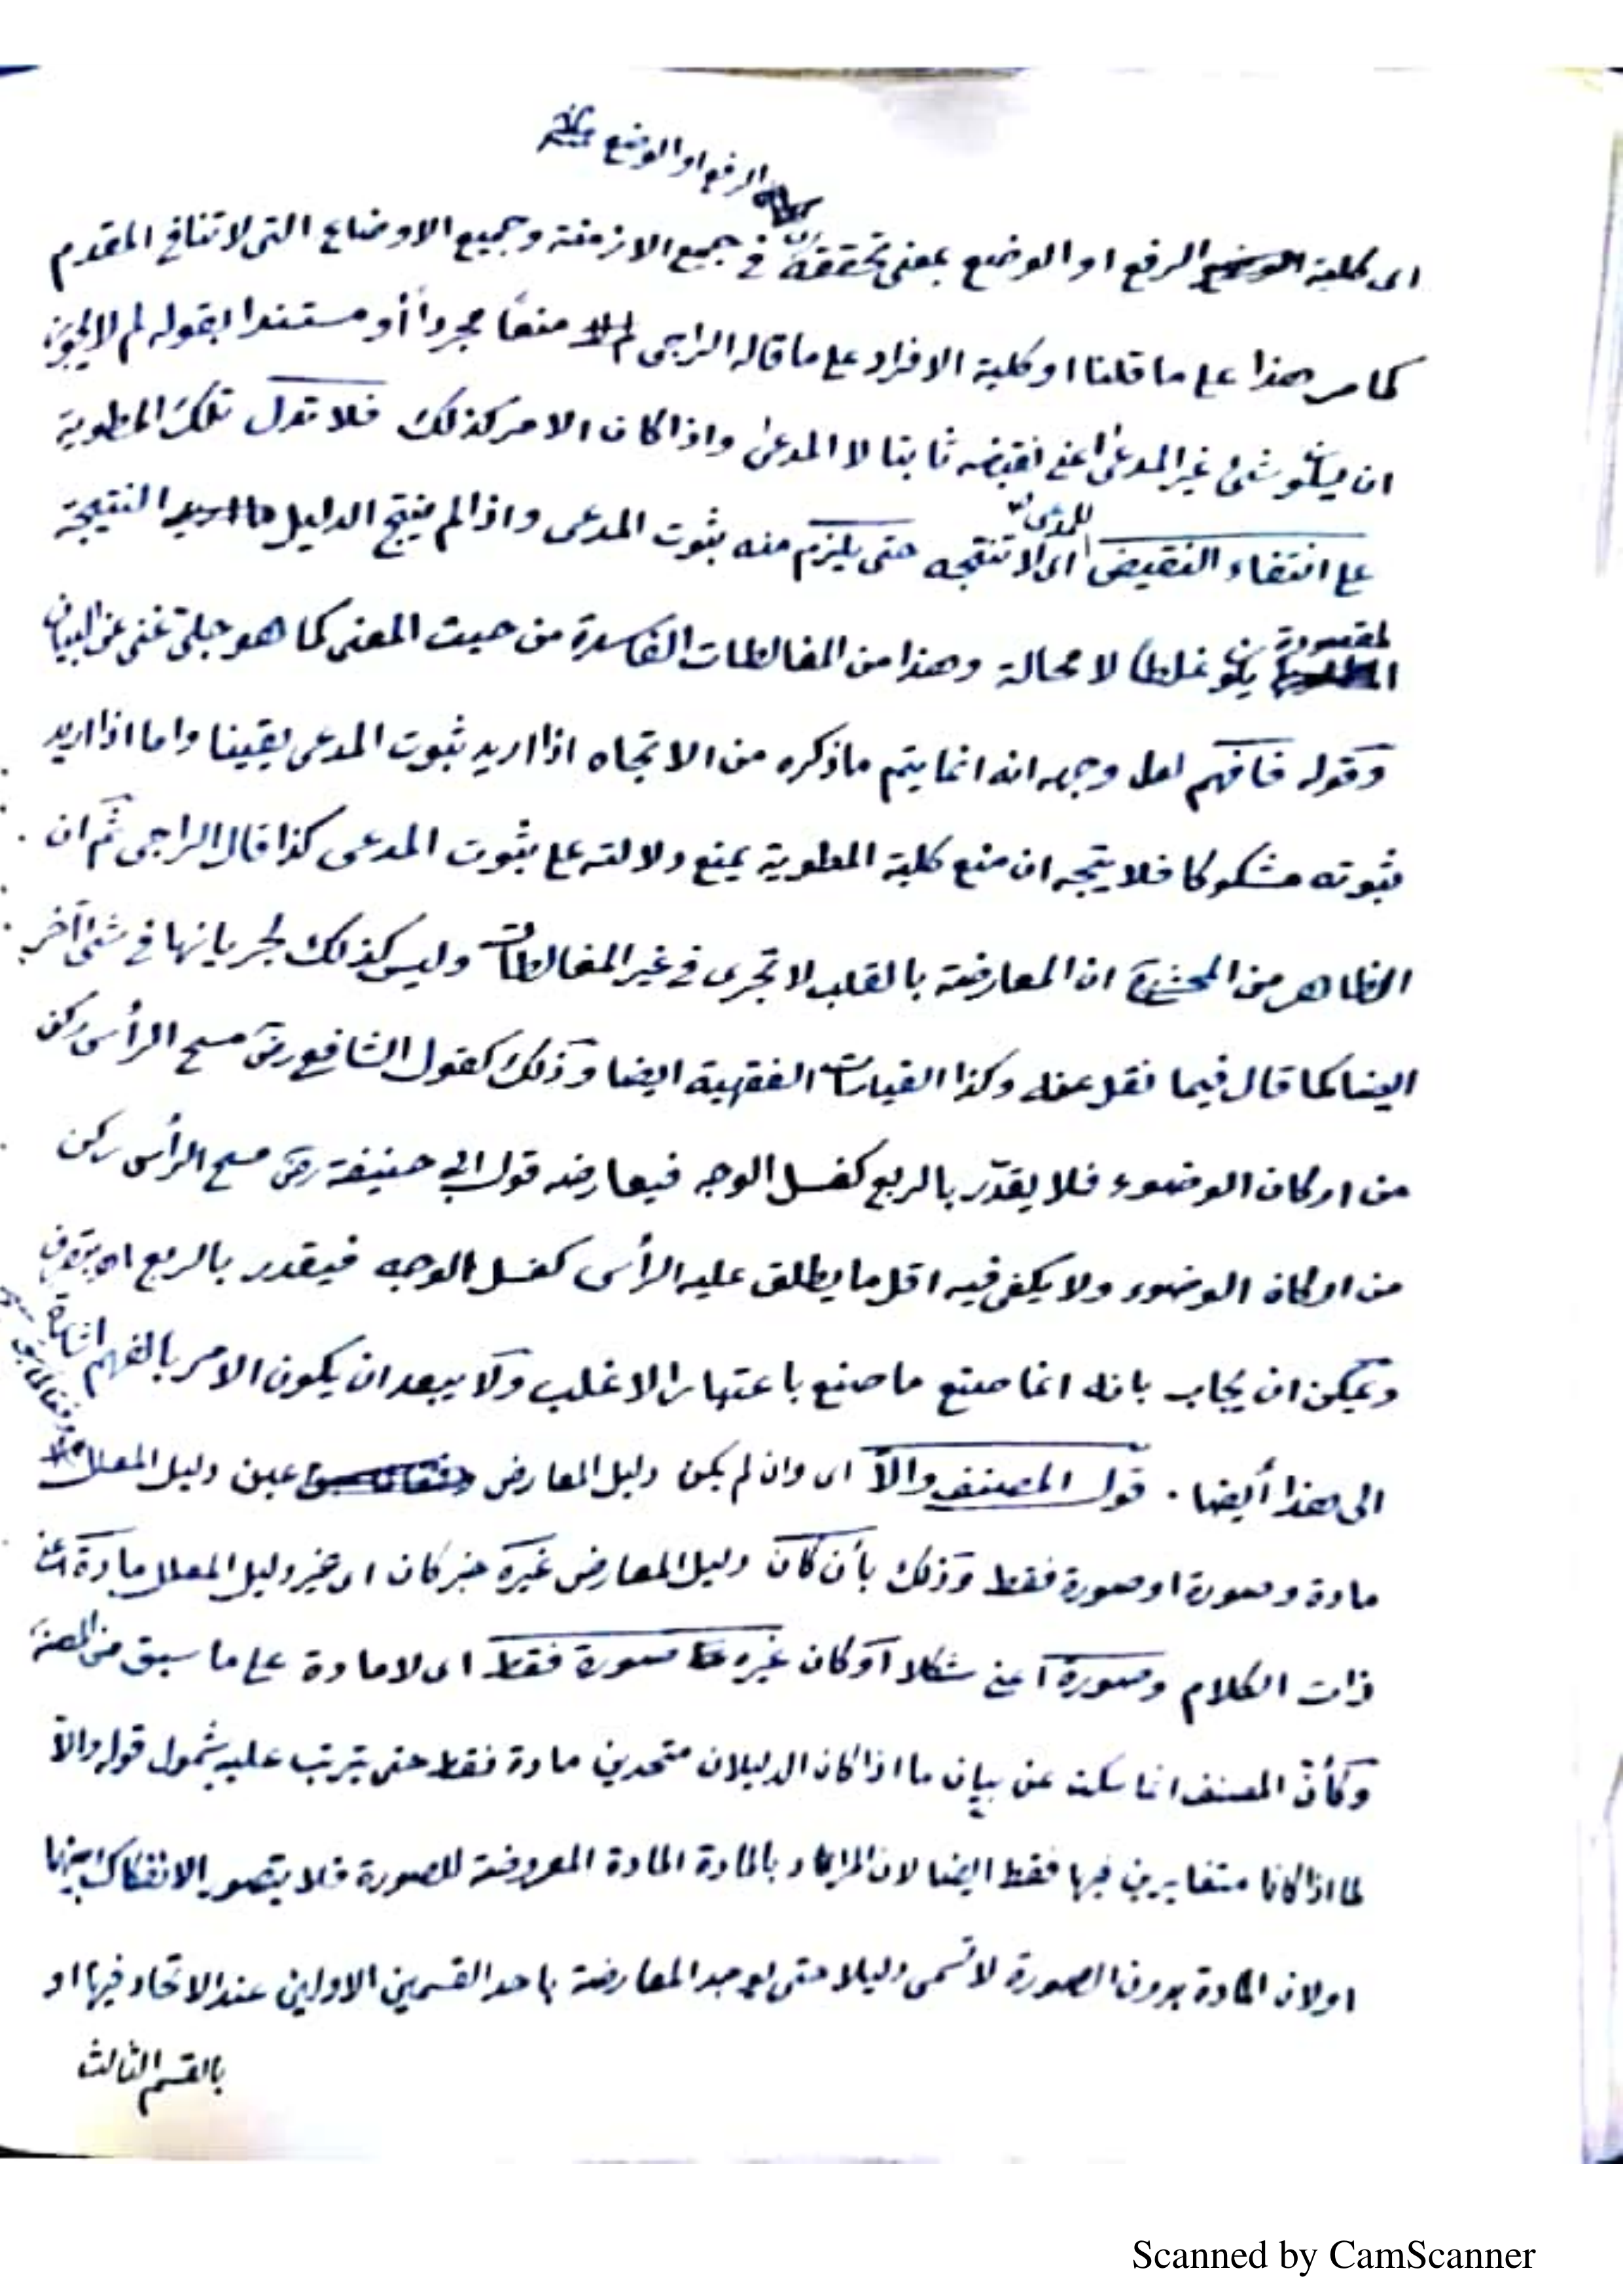 الرفع او الوضع
اى كلية الرفع او الوضع بمعنى تحققه فى جميع الازمنة وجميع الاوضاع التى لا تنافى المقدم
كما مر هذا على ما قلنا او كلية الافراد على ما قاله الراجى منعًا مجرداً أو مستندا بقوله لم لا يجوز
ان يكون شئ غير المدعى اعنى نقيضه ثابتا لا المدعى واذا كان الامر كذلك فلا تدل تلك المطوية
على انتفاء النقيض اى لا تنتجه حتى يلزم منه ثبوت المدعى واذا لم ينتج الدليل النتيجة
للمدعى
المقصودة يكون غلطا لا محالة وهذا من المغالطات الفاسدة من حيث المعنى كما هو جلى غنى عن البيان
وقوله فافهم لعل وجهه انه انما يتم ما ذكره من الاتجاه اذا اريد ثبوت المدعى يقينا واما اذا اريد
ثبوته مشكوكا فلا يتجه ان منع كلية المطوية يمنع دلالته على ثبوت المدعى كذا قال الراجى ثم ان
الظاهر من المحشى ان المعارضة بالقلب لا تجرى فى غير المغالطات وليس كذلك لجريانها فى شئ آخر
ايضا كما قال فيما نقل عنه وكذا القياسات الفقهية ايضا وذلك كقول الشافعى رض مسح الرأس ركن
من اركان الوضوء فلا يقدّر بالربع كغسل الوجه فيعارضه قول ابى حنيفة رض مسح الرأس ركن
من اركان الوضوء ولا يكفى فيه اقل ما يطلق عليه الرأس كغسل الوجه فيقدر بالربع اه
ويمكن ان يجاب بانه انما صنع ما صنع باعتبار الاغلب ولا يبعد ان يكون الامر بالفهم اشارة
الى هذا أيضا . قول المصنف والاّ اى وان لم يكن دليل المعارض عين دليل المعلل
مادة وصورة او صورة فقط وذلك بأن كان دليل المعارض غيره خبر كان اى غير دليل المعلل مادة اعنى
ذات الكلام وصورة اعنى شكلا او كان غيره صورة فقط اى لا مادة على ما سبق من المصنف
وكأنّ المصنف انما سكت عن بيان ما اذا كان الدليلان متحدين مادة فقط حتى يترتب عليه شمول قوله والاّ
لما اذا كانا متغايرين فيها فقط ايضا لان المراد بالمادة المادة المعروضة للصورة فلا يتصور الانفكاك بينهما
او لان المادة بدون الصورة لا تسمى دليلا حتى يوجد المعارضة باحد القسمين الاولين عند الاتحاد فيها او
بالقسم الثالث
Scanned by CamScanner